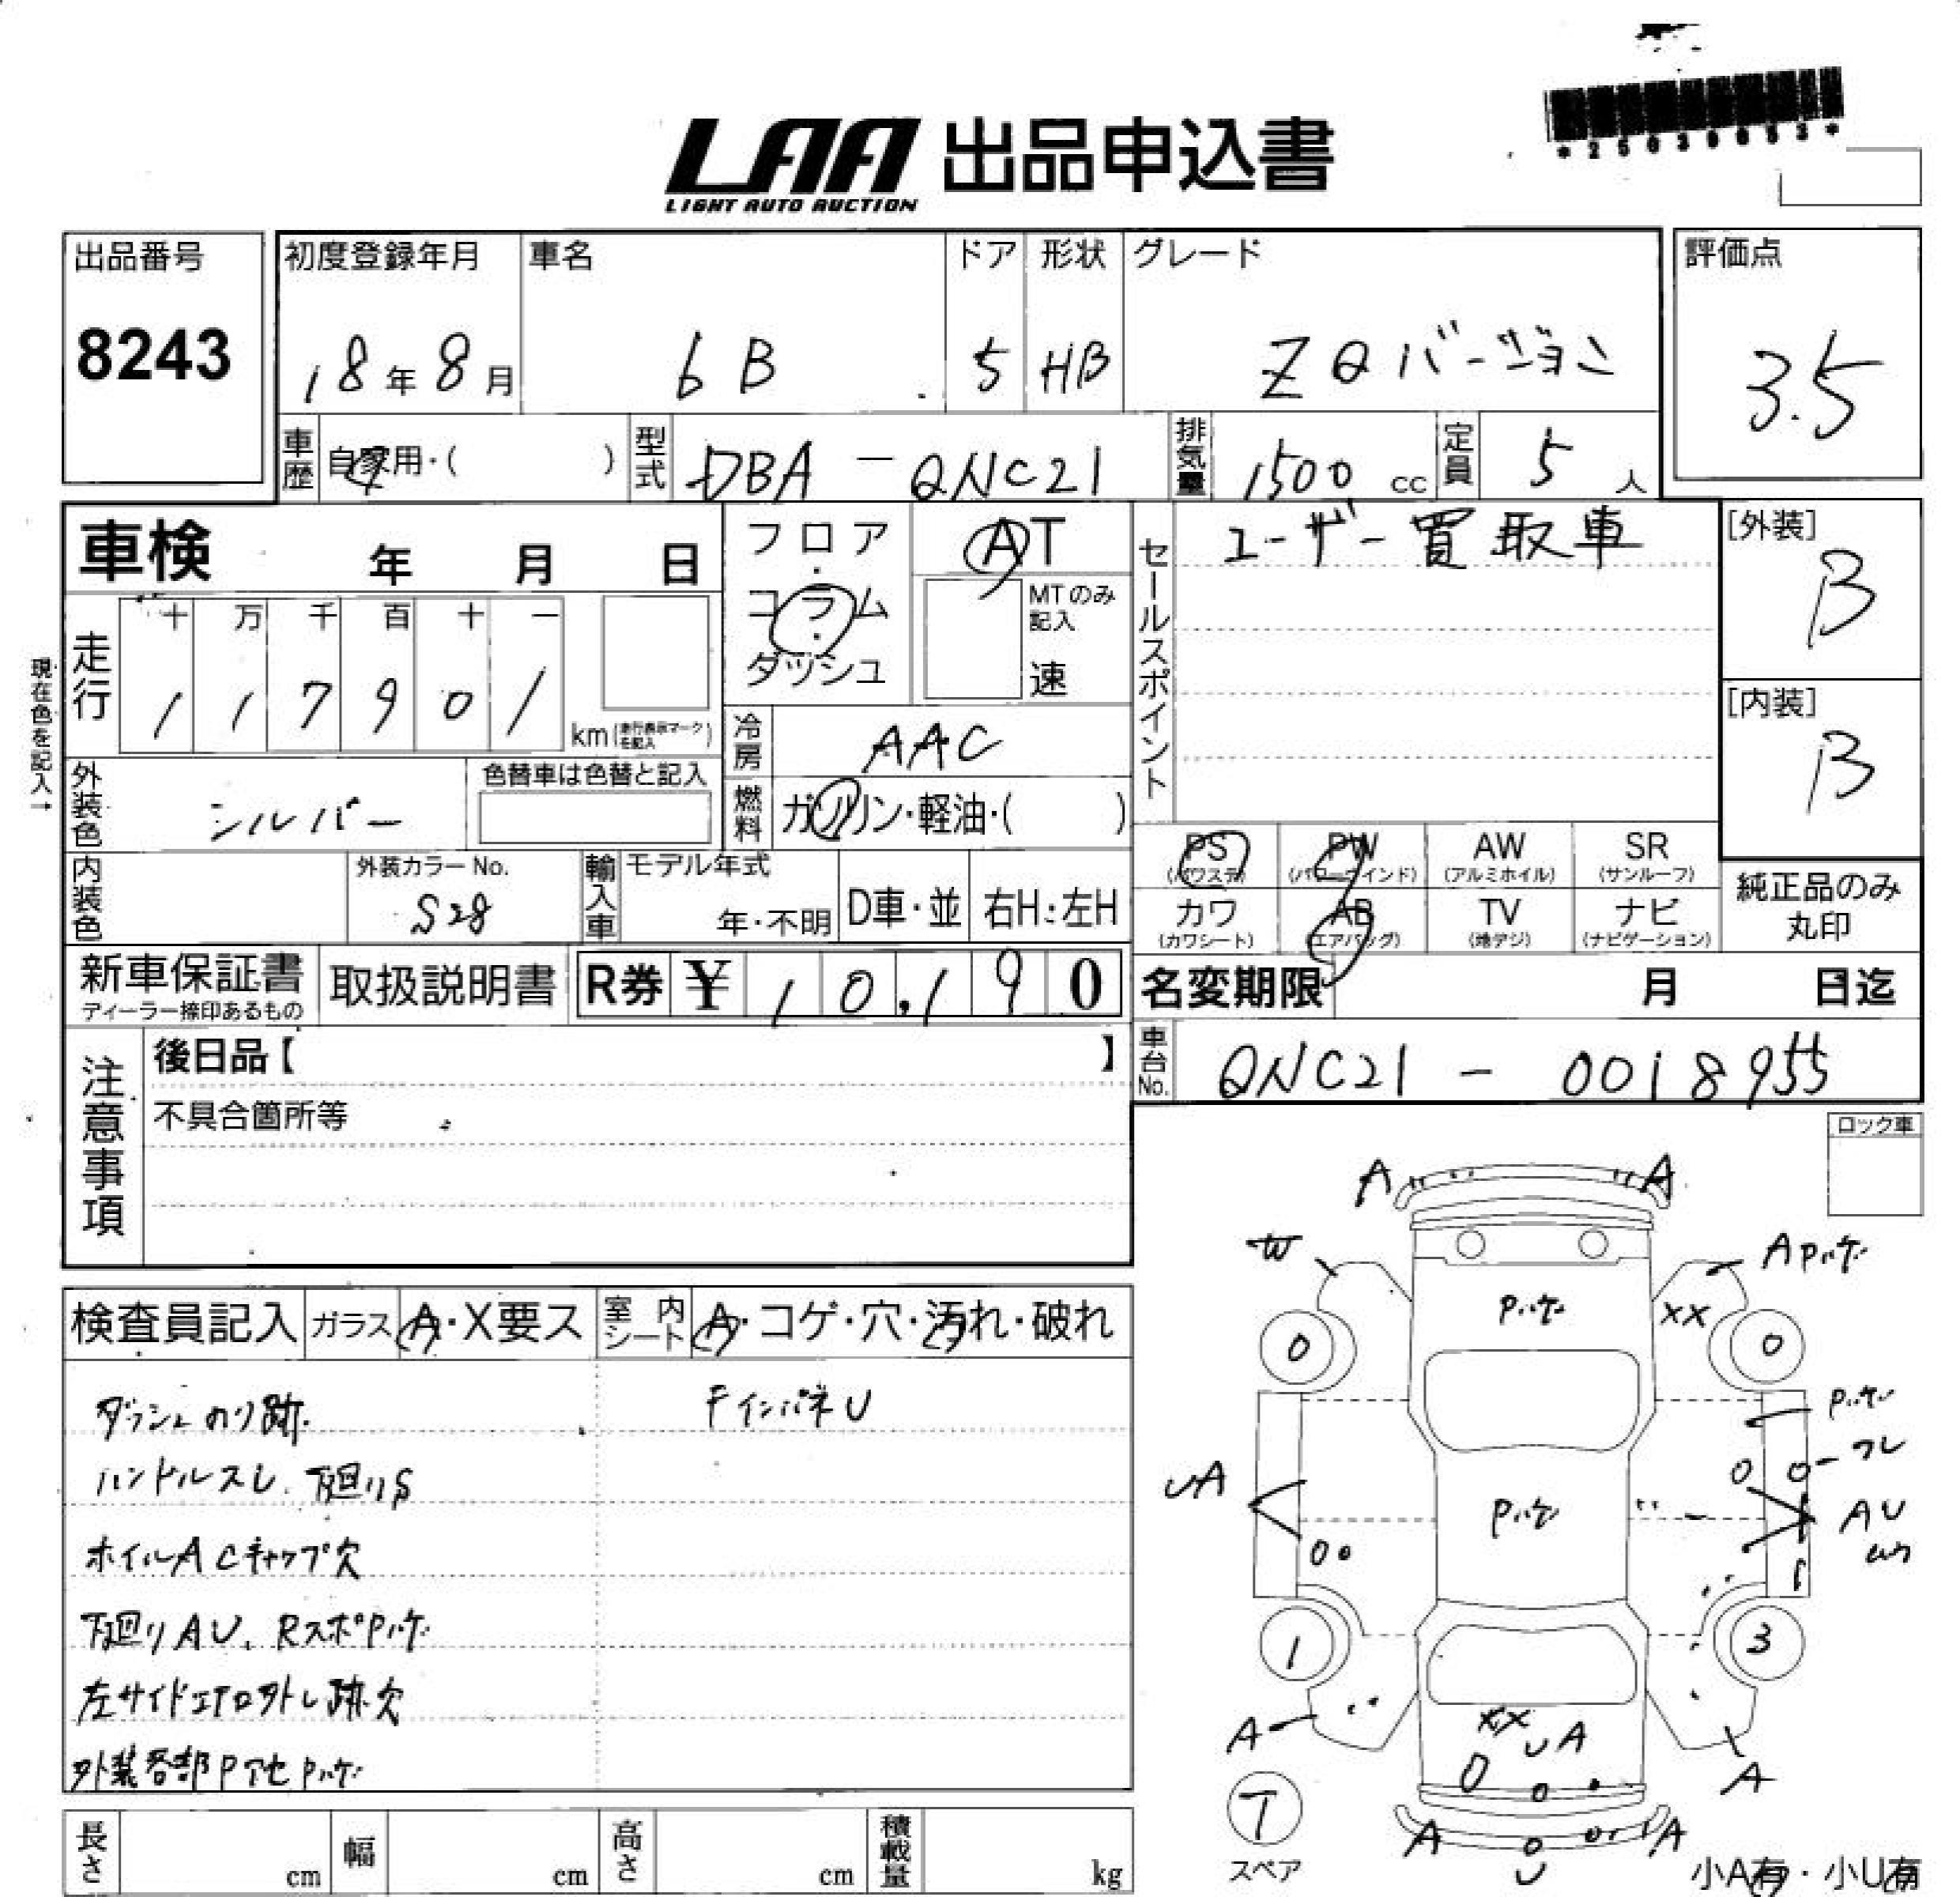 *25039053*
LAA 出品申込書
LIGHT AUTO AUCTION
出品番号 初度登録年月 車名 ドア 形状 グレード 評価点
8243 18年8月 bB 5 HB ZQバージョン 3.5
車歴 自家用・( ) 型式 DBA-QNC21 排気量 1500 cc 定員 5 人
車検 年 月 日 フロア・コラム・ダッシュ AT
MTのみ記入 速
セールスポイント ユーザー買取車
[外装] B
走行 十 万 千 百 十 一
1 1 7 9 0 1 km (走行表示マークを記入)
現在色を記入→
[内装] B
冷房 AAC
外装色 シルバー 色替車は色替と記入 燃料 ガソリン・軽油・( )
PS (パワステ) PW (パワーウインド) AW (アルミホイル) SR (サンルーフ)
内装色 外装カラーNo. S28 輸入車 モデル年式 年・不明 D車・並 右H・左H
カワ (カワシート) AB (エアバッグ) TV (地デジ) ナビ (ナビゲーション)
純正品のみ丸印
新車保証書 ディーラー捺印あるもの 取扱説明書 R券 ¥ 10,190 名変期限 月 日迄
注意事項 後日品【 】 車台No. QNC21-0018955
不具合箇所等
ロック車
検査員記入 ガラス A・X要ス 室内シート A・コゲ・穴・汚れ・破れ
ダッシュのり跡. FインパネU
ハンドルスレ. 下廻りS
ホイルA Cキャップ欠
下廻りAU. RスポPハゲ
左サイドエアロ外レ跡欠
外装各部Pアセ Pハゲ
A A
W A Pハゲ
Pハゲ XX
0 0
Pハゲ
フレ
UA Pハゲ AU
1 3
A XX UA A
T
スペア
A U A
小A有・小U有
長さ cm 幅 cm 高さ cm 積載量 kg